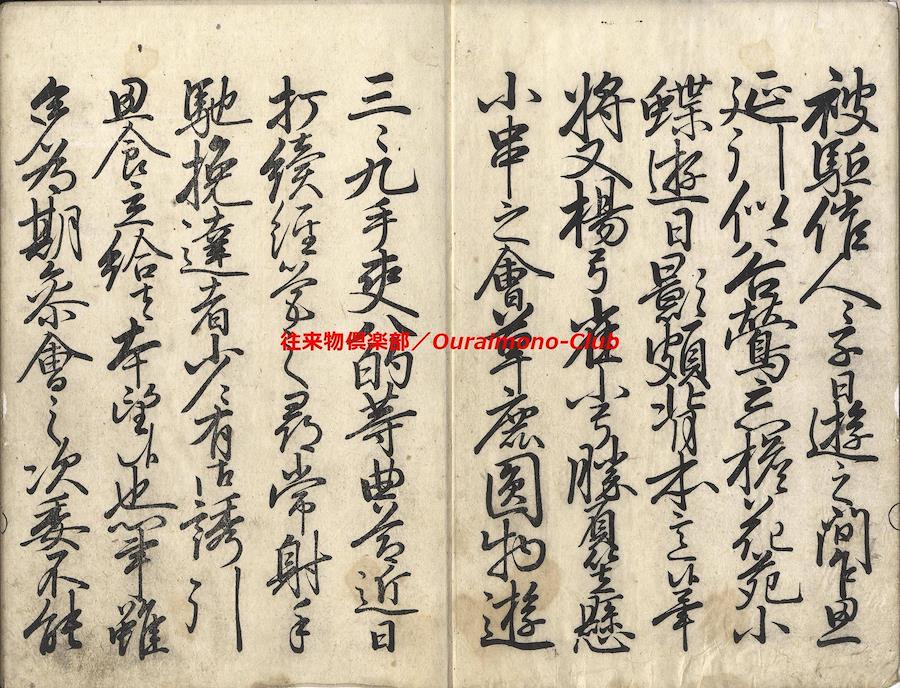 被駈催人々子日遊之間乍思
延引似谷鶯忘檐花苑小
蝶遊日影頗背本意候畢
將又楊弓雀小弓勝負笠懸
小串之會草鹿圓物遊
三々九手夾八的等曲節近日
打續經營之尋常射手
馳挽達者少々有御誘引
思食立給者本望候也心事雖
多為期参會之次委不能
往来物倶楽部／Ouraimono-Club